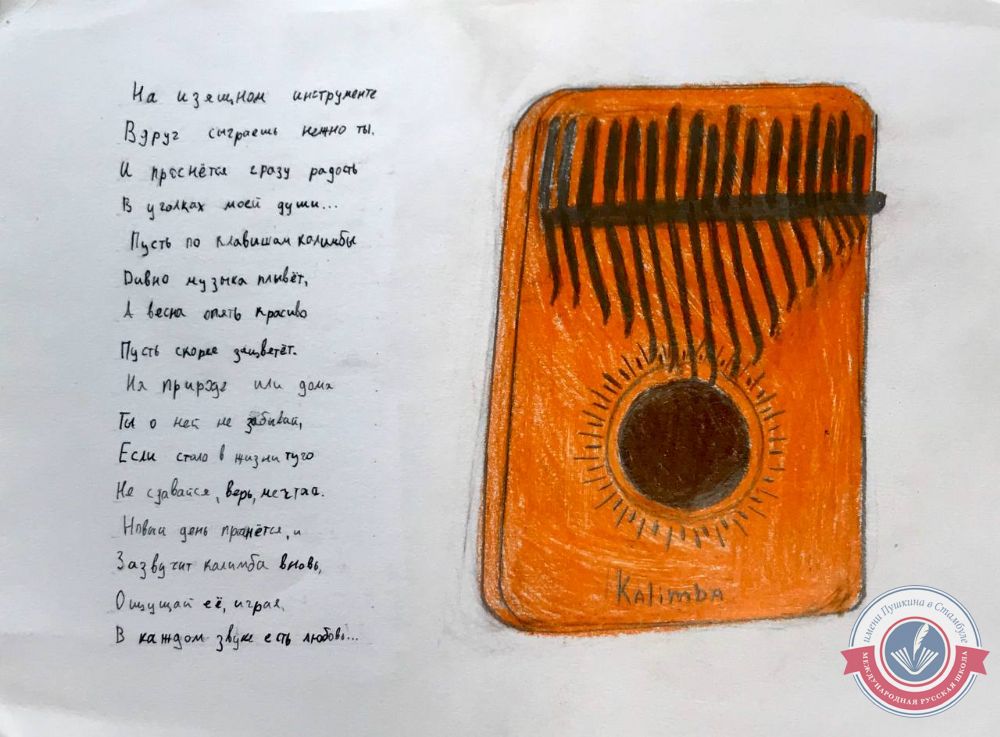 На изящном инструменте
Вдруг сыграешь нежно ты.
И проснётся сразу радость
В уголках моей души...
Пусть по клавишам калимбы
Дивно музыка плывёт,
А весна опять красиво
Пусть скорее зацветёт.
На природе или дома
Ты о ней не забывай,
Если стало в жизни туго
Не сдавайся, верь, мечтай.
Новый день начнётся, и
Зазвучит калимба вновь,
Ощущай её, играя,
В каждом звуке есть любовь...
Kalimba
имени Пушкина в Стамбуле
МЕЖДУНАРОДНАЯ РУССКАЯ ШКОЛА